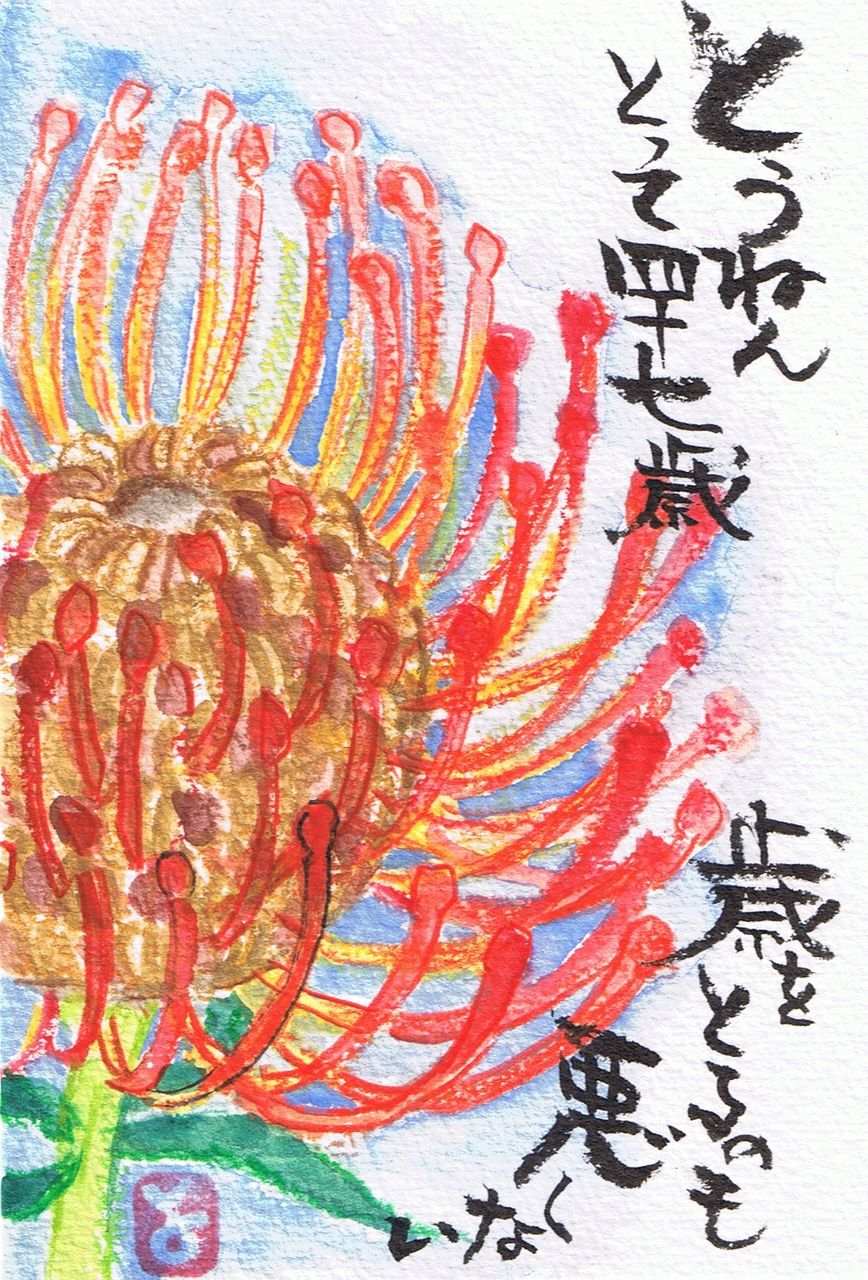 とうねん
とって四十七歳
歳を
とるのも
悪く
ない